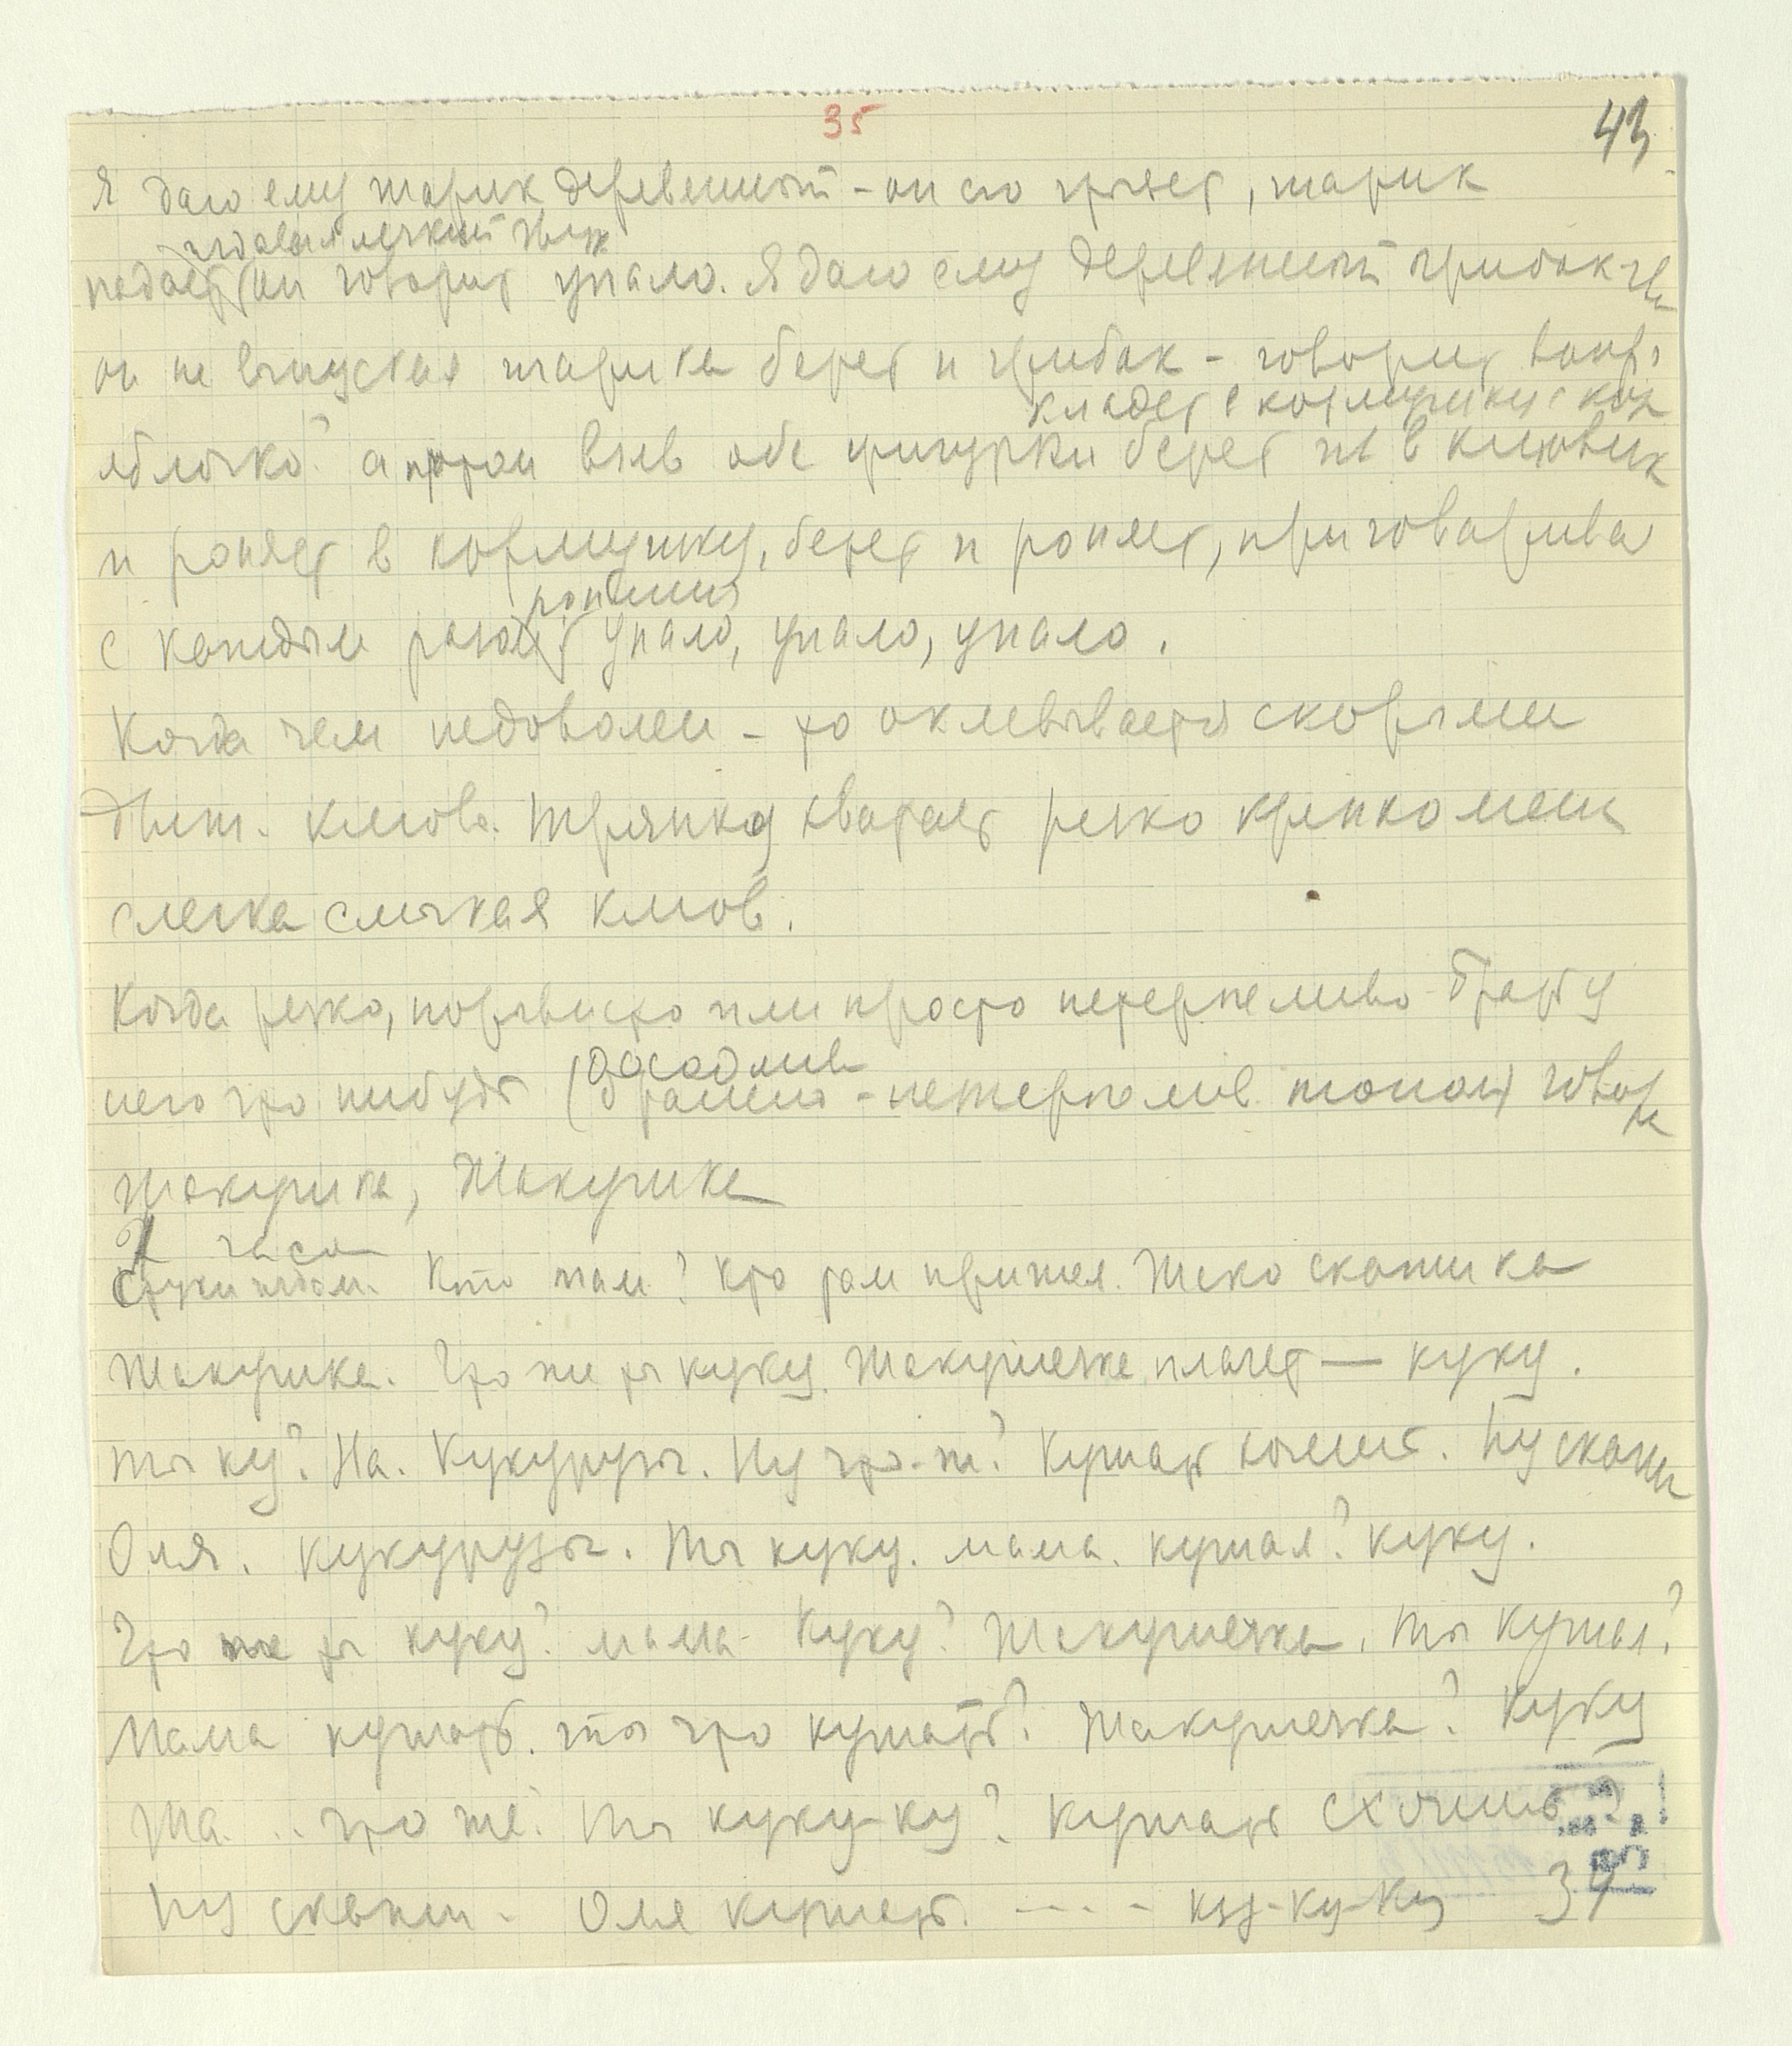 35
43
Я даю ему шарик деревянный - он его грызет, шарик
издавая легкий звук
падает он говорит упало. Я даю ему деревянный грибок -
он не выпуская шарика берет и грибок - говорит
кладет в кормушку
яблочко? а потом взяв обе фигурки берет их в клювик
и роняет в кормушку, берет и роняет, приговарива
ронянья
с каждым разом упало, упало, упало.
Когда чем недоволен - то оклевывается скорыми
движ. клюва. Тряпку хватает резко крепко
слегка смыкая клюв.
Когда резко, порывисто или просто нетерпеливо брать у
досадлив
него что нибудь ( - нетерпелив. тоном) говор
Жакушка, Жакушка
2 часа
Кто там? Кто там пришел. Жако скажи ка
Жакушка. Что же ты куку. Жакушечка плачет — куку.
ты ку? На. Кукурузы. Ну что-ж? Кушать хочешь. Ну скажи
Оля. Кукурузы. Ты куку. мама. кушал? куку.
Что же ты куку? мама - Куку? Жакушечка. Ты кушал?
Мама кушать. ты что кушать? Жакушечка? Куку
Жа. .. что же? Ты куку-ку? Кушать схочишь?
Ну скажи - Оля кушать. - - - - ку-ку-ку 34